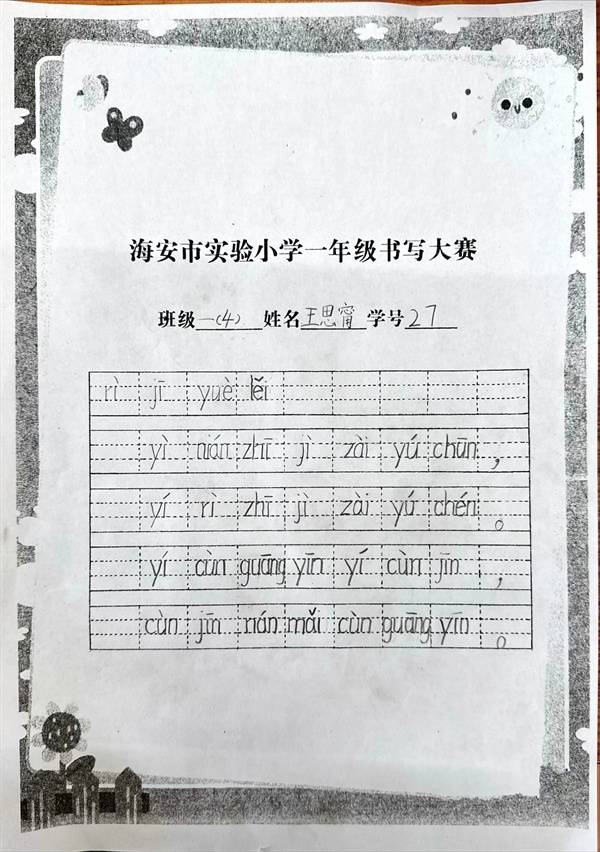 海安市实验小学一年级书写大赛
班级一(4) 姓名王思甯学号27
rì jī yuè lěi
yì nián zhī jì zài yú chūn ，
yí rì zhī jì zài yú chén 。
yí cùn guāng yīn yí cùn jīn ，
cùn jīn nán mǎi cùn guāng yīn 。